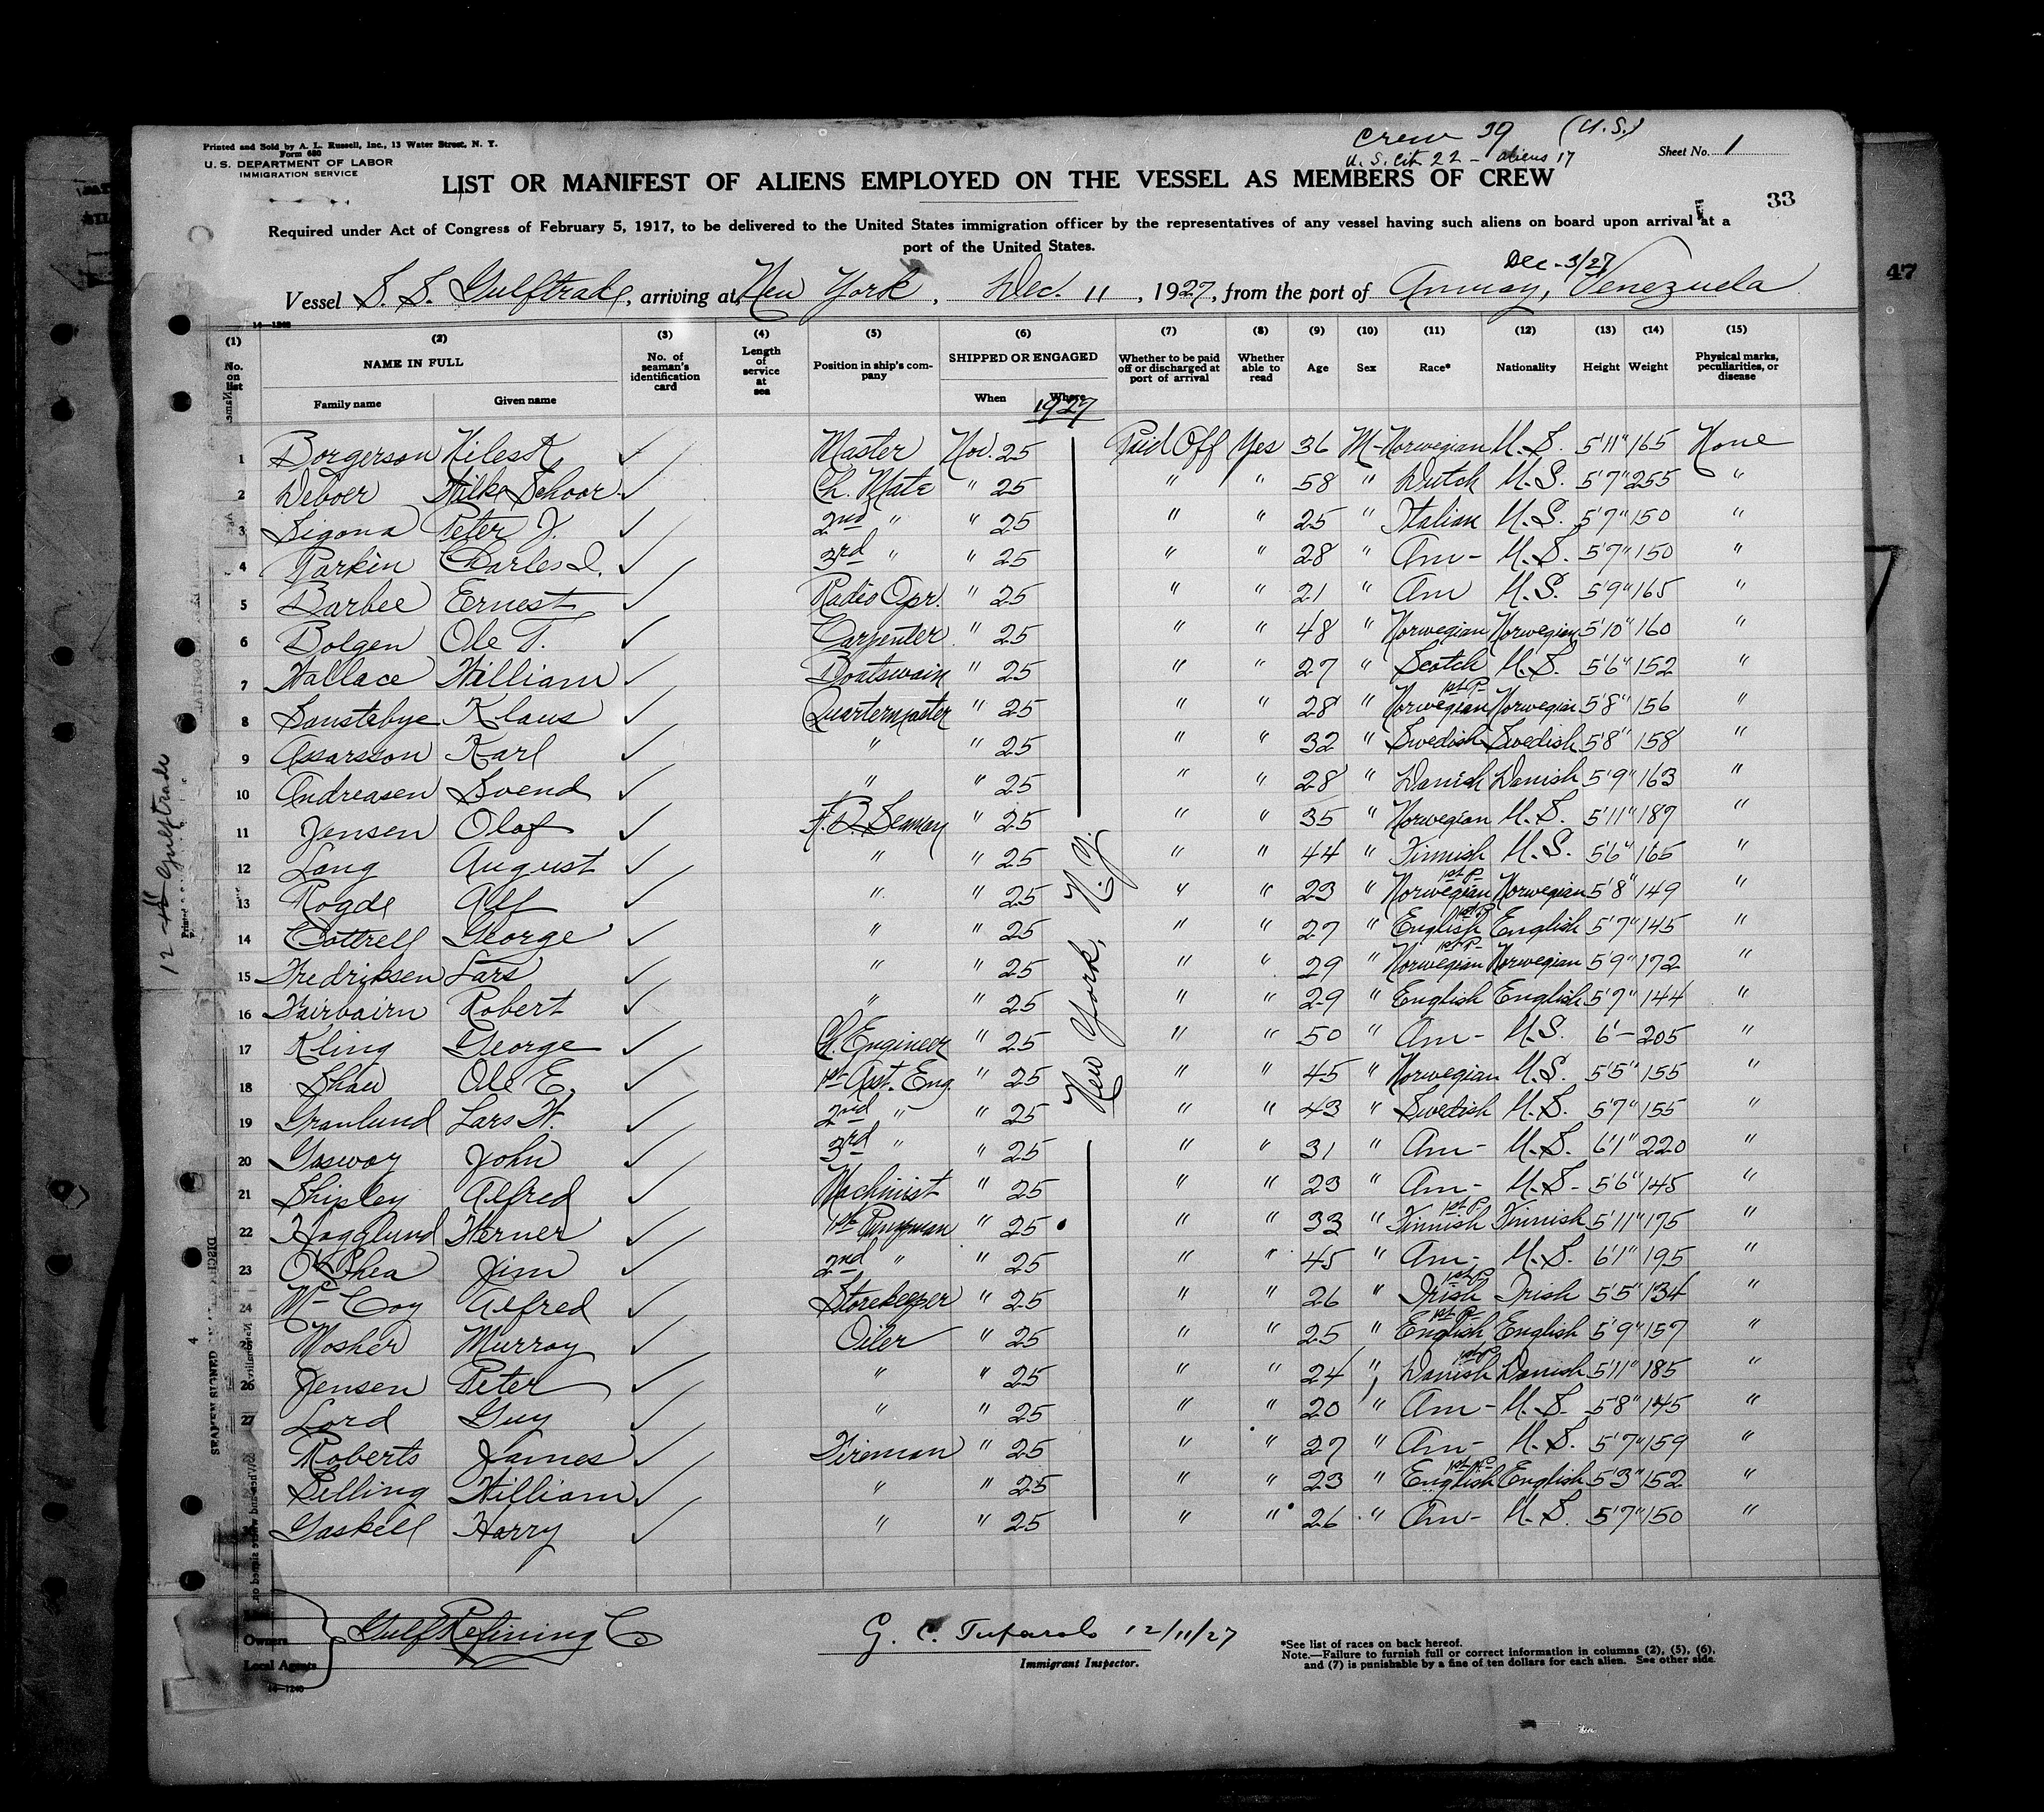 Printed and Sold by A. L. Russell, Inc., 13 Water Street, N. Y.
Form 680
U. S. DEPARTMENT OF LABOR
IMMIGRATION SERVICE
Crew 39 (U.S.)
U. S. Cit. 22 - aliens 17
Sheet No. 1
LIST OR MANIFEST OF ALIENS EMPLOYED ON THE VESSEL AS MEMBERS OF CREW
33
Required under Act of Congress of February 5, 1917, to be delivered to the United States immigration officer by the representatives of any vessel having such aliens on board upon arrival at a
port of the United States.
Dec - 3/27
47
Vessel S. S. Gulftrade, arriving at New York, Dec. 11, 1927, from the port of Amuay, Venezuela
14-1240
(1) (2) (3) (4) (5) (6) (7) (8) (9) (10) (11) (12) (13) (14) (15)
No. on list NAME IN FULL No. of seaman's identification card Length of service at sea Position in ship's company SHIPPED OR ENGAGED Whether to be paid off or discharged at port of arrival Whether able to read Age Sex Race* Nationality Height Weight Physical marks, peculiarities, or disease
Family name Given name When Where
1927
1 Borgerson Niles K. ✓ Master Nov. 25 Paid Off Yes 36 M- Norwegian U.S. 5'11" 165 None
2 Deboer Schoor ✓ Ch. Mate " 25 " " 58 " Dutch U.S. 5'7" 255 "
3 Sigona Peter J. ✓ 2nd " " 25 " " 25 " Italian U.S. 5'7" 150 "
4 Parkin Charles I. ✓ 3rd " " 25 " " 28 " Am- U.S. 5'7" 150 "
5 Barbee Ernest ✓ Radio Opr. " 25 " " 21 " Am U.S. 5'9" 165 "
6 Bolgen Ole T. ✓ Carpenter " 25 " " 48 " Norwegian Norwegian 5'10" 160 "
7 Wallace William ✓ Boatswain " 25 " " 27 " Scotch U.S. 5'6" 152 "
1st P-
8 Saustebye Klaus ✓ Quartermaster " 25 " " 28 " Norwegian Norwegian 5'8" 156 "
9 Assarsson Karl ✓ " " 25 " " 32 " Swedish Swedish 5'8" 158 "
10 Andreasen Svend ✓ " " 25 " " 28 " Danish Danish 5'9" 163 "
11 Jensen Olaf ✓ A.B. Seaman " 25 " " 35 " Norwegian U.S. 5'11" 187 "
12 Lang August ✓ " " 25 " " 44 " Finnish U.S. 5'6" 165 "
1st P-
13 Rogde Alf ✓ " " 25 " " 23 " Norwegian Norwegian 5'8" 149 "
1st P-
14 Cottrell George ✓ " " 25 " " 27 " English English 5'7" 145 "
1st P-
15 Fredriksen Lars ✓ " " 25 " " 29 " Norwegian Norwegian 5'9" 172 "
16 Fairbairn Robert ✓ " " 25 " " 29 " English English 5'7" 144 "
New York, N.Y.
17 Kling George ✓ Ch. Engineer " 25 " " 50 " Am- U.S. 6'- 205 "
18 Shaw Ole E. ✓ 1st Asst. Eng. " 25 " " 45 " Norwegian U.S. 5'5" 155 "
19 Granlund Lars W. ✓ 2nd " " 25 " " 43 " Swedish U.S. 5'7" 155 "
20 Gasway John ✓ 3rd " " 25 " " 31 " Am- U.S. 6'1" 220 "
21 Shipley Alfred ✓ Machinist " 25 " " 23 " Am- U.S.- 5'6" 145 "
1st P-
22 Hagglund Werner ✓ 1st Pumpman " 25 " " 33 " Finnish Finnish 5'11" 175 "
23 O'Shea Jim ✓ 2nd " " 25 " " 45 " Am- U.S. 6'1" 195 "
1st P
24 McCoy Alfred ✓ Storekeeper " 25 " " 26 " Irish Irish 5'5" 134 "
1st P-
25 Mosher Murray ✓ Oiler " 25 " " 25 " English English 5'9" 157 "
1st P
26 Jensen Peter ✓ " " 25 " " 24 " Danish Danish 5'11" 185 "
27 Lord Guy ✓ " " 25 " " 20 " Am- U.S. 5'8" 145 "
Roberts James ✓ Fireman " 25 " " 27 " Am- U.S. 5'7" 159 "
1st P-
Selling William ✓ " " 25 " " 23 " English English 5'3" 152 "
Gaskell Harry ✓ " " 25 " " 26 " Am- U.S. 5'7" 150 "
12 Gulftrade
Owners Gulf Refining Co
Local Agents
14-1240
G. C. Tufarolo 12/11/27
Immigrant Inspector.
*See list of races on back hereof.
Note.—Failure to furnish full or correct information in columns (2), (5), (6),
and (7) is punishable by a fine of ten dollars for each alien. See other side.